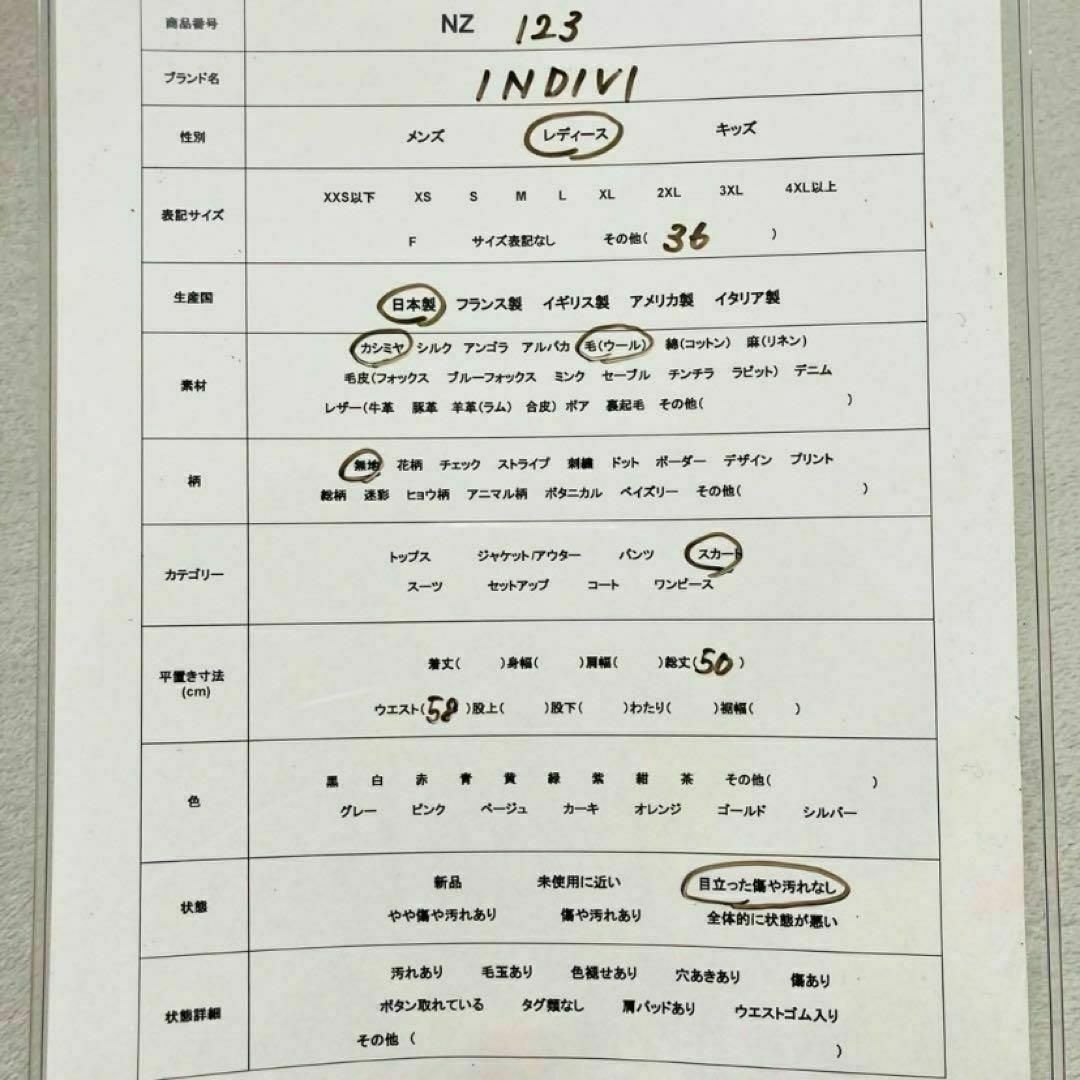 商品番号 NZ 123
ブランド名 INDIVI
性別 メンズ レディース キッズ
表記サイズ
XXS以下 XS S M L XL 2XL 3XL 4XL以上
F サイズ表記なし その他( 36 )
生産国 日本製 フランス製 イギリス製 アメリカ製 イタリア製
素材
カシミヤ シルク アンゴラ アルパカ 毛(ウール) 綿(コットン) 麻(リネン)
毛皮(フォックス ブルーフォックス ミンク セーブル チンチラ ラビット) デニム
レザー(牛革 豚革 羊革(ラム) 合皮) ボア 裏起毛 その他( )
柄
無地 花柄 チェック ストライプ 刺繍 ドット ボーダー デザイン プリント
総柄 迷彩 ヒョウ柄 アニマル柄 ボタニカル ペイズリー その他( )
カテゴリー
トップス ジャケット/アウター パンツ スカート
スーツ セットアップ コート ワンピース
平置き寸法
(cm)
着丈( )身幅( )肩幅( )総丈(50)
ウエスト(58)股上( )股下( )わたり( )裾幅( )
色
黒 白 赤 青 黄 緑 紫 紺 茶 その他( )
グレー ピンク ベージュ カーキ オレンジ ゴールド シルバー
状態
新品 未使用に近い 目立った傷や汚れなし
やや傷や汚れあり 傷や汚れあり 全体的に状態が悪い
状態詳細
汚れあり 毛玉あり 色褪せあり 穴あきあり 傷あり
ボタン取れている タグ類なし 肩パッドあり ウエストゴム入り
その他 ( )